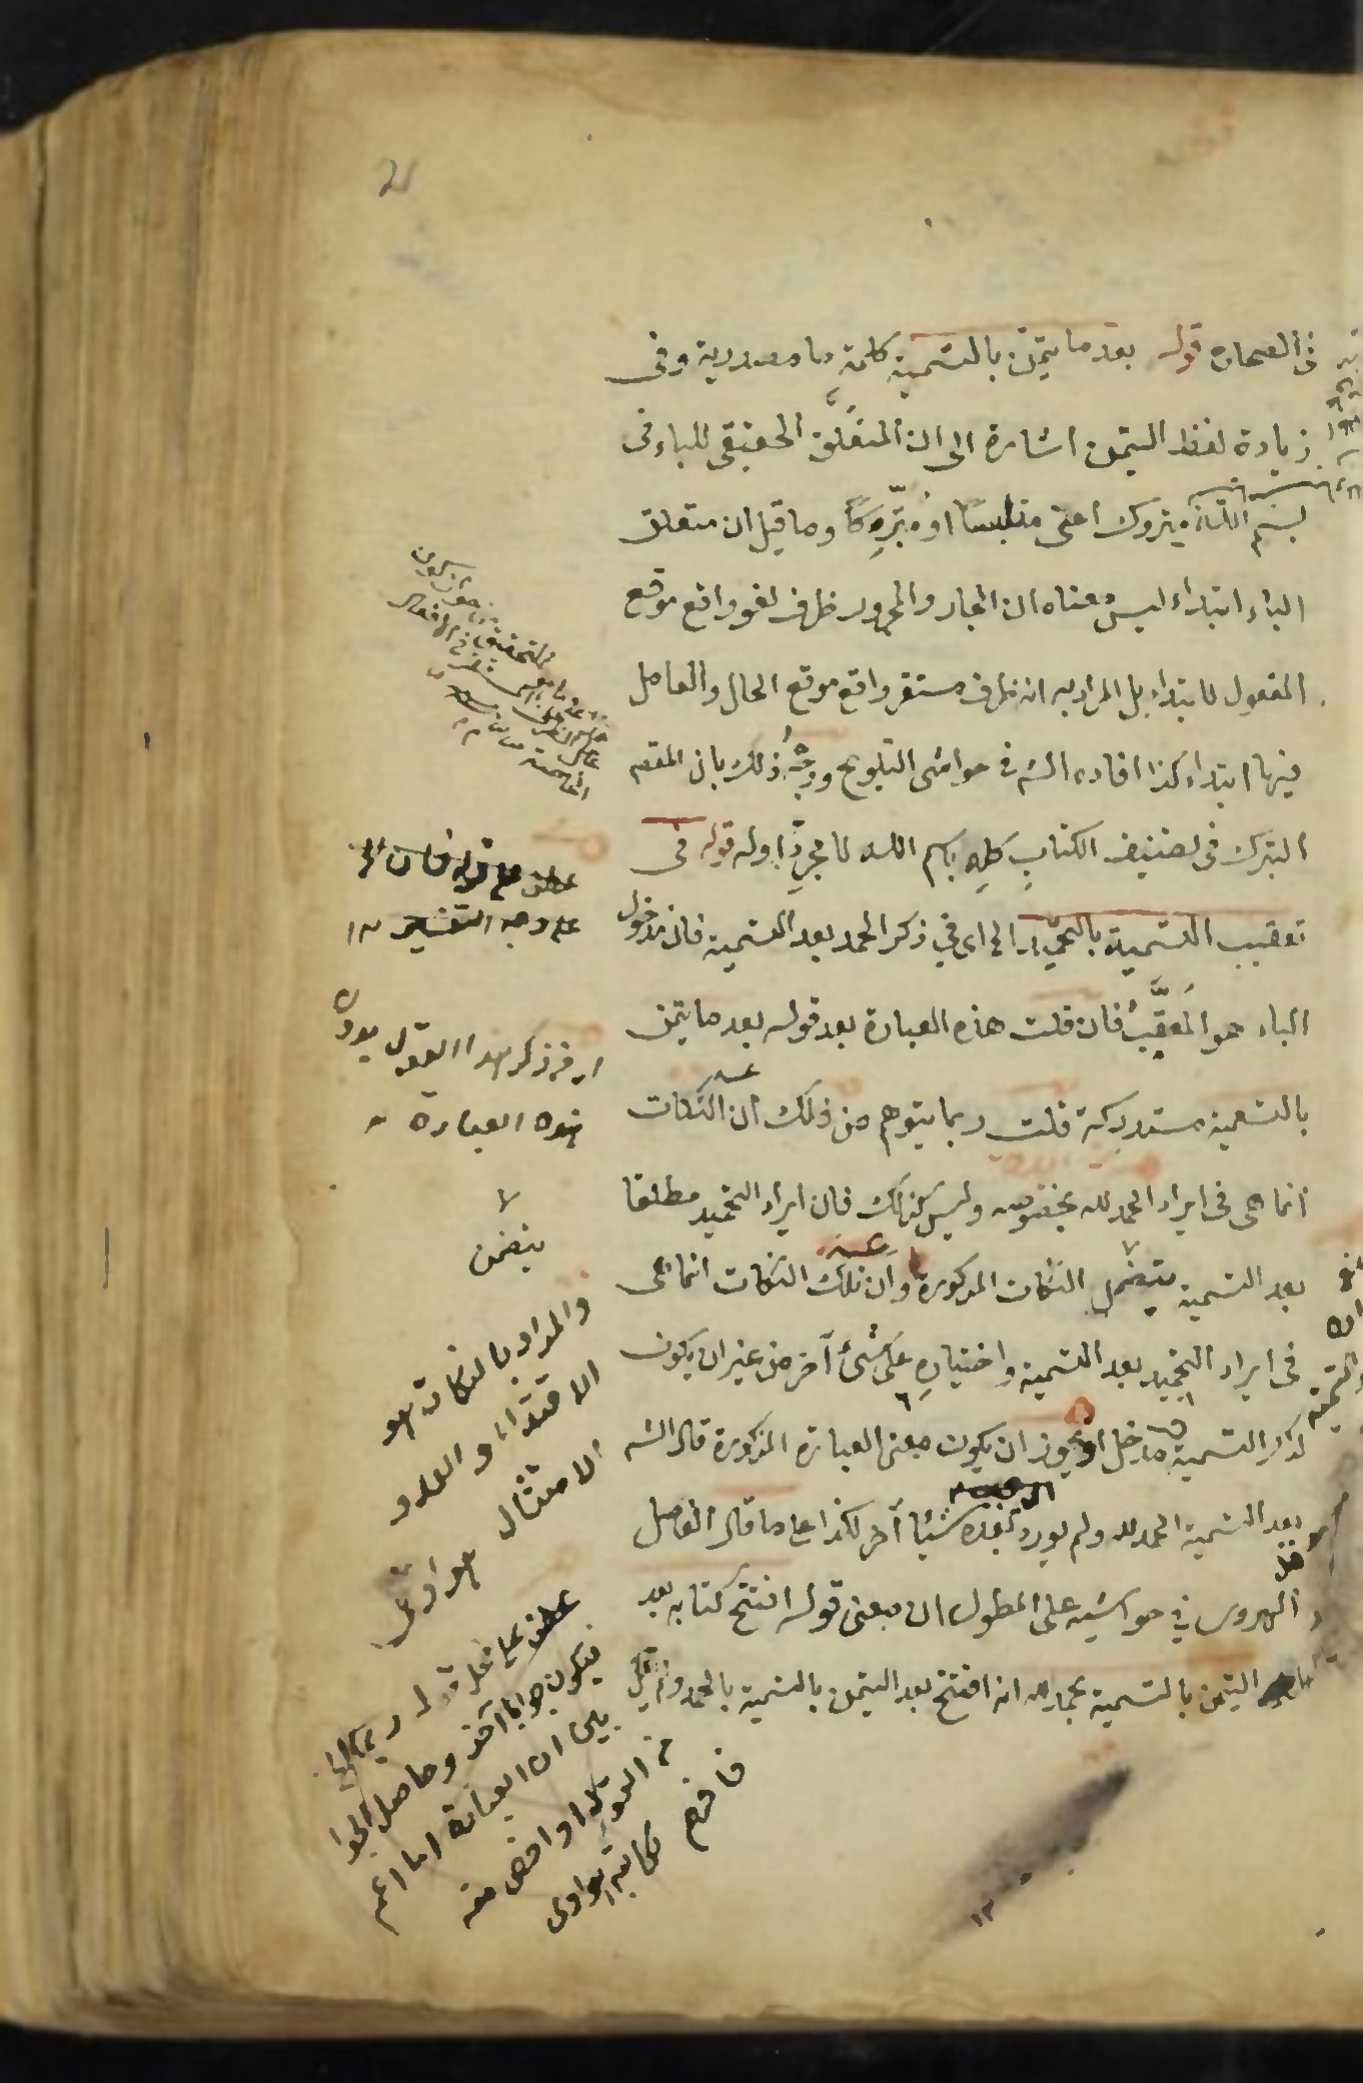 في الصحاح قوله بعد ما تيمن بالتسمية كلمة ما مصدرية وفى
زيادة لفظ التيمن اشارة الى ان المتعلق الحقيقى للباء فى
بسم الله متروك اعنى متلبسا او متبركا وما قيل ان متعلق
الباء ابتداء ليس معناه ان الجار والمجرور ظرف لغو واقع موقع
المفعول لابتداء بل المراد به انه ظرف مستقر واقع موقع الحال والعامل
فيها ابتداء كذا افاده الشه في حواشى التلويح ووجه ذلك بان المقصم
التبرك فى تصنيف الكتاب كله باسم الله لا مجرد اوله قوله فى
تعقيب التسمية بالتحميد الخ اى في ذكر الحمد بعد التسمية فان مدخول
الباء هو المعقب فان قلت هذه العبارة بعد قوله بعد ما تيمن
بالتسمية مستدركة قلت ربما يتوهم من ذلك ان النكات
انما هى فى ايراد الحمد لله بخصوصه وليس كذلك فان ايراد التحميد مطلقا
بعد التسمية يتضمن النكات المذكورة وان تلك النكات انما هى
فى ايراد التحميد بعد التسمية واختياره على شئ آخر من غير ان يكون
لذكر التسمية مدخل او يجوز ان يكون معنى العبارة المذكورة قال الشه
بعد التسمية الحمد لله ولم يورد بعده شيئا آخر لكن على ما قال الفاضل
الهروى في حواشيه على المطول ان معنى قوله افتتح كتابه بعد
التيمن بالتسمية بحمد الله انه افتتح بعد التيمن بالتسمية بالحمد ولم
عطف على قوله فان الخ
على وجه التفسير ١٢
اى في ذكر هذا القول بدون
هذه العبارة
يتضمن
والمراد بالنكات هو
الاقتداء والعد و
الامتثال
عطف على
فيكون جوابا آخر وحاصل الجوا
بين ان العبارة اما اعم
من القول او اخص منه
فافهم